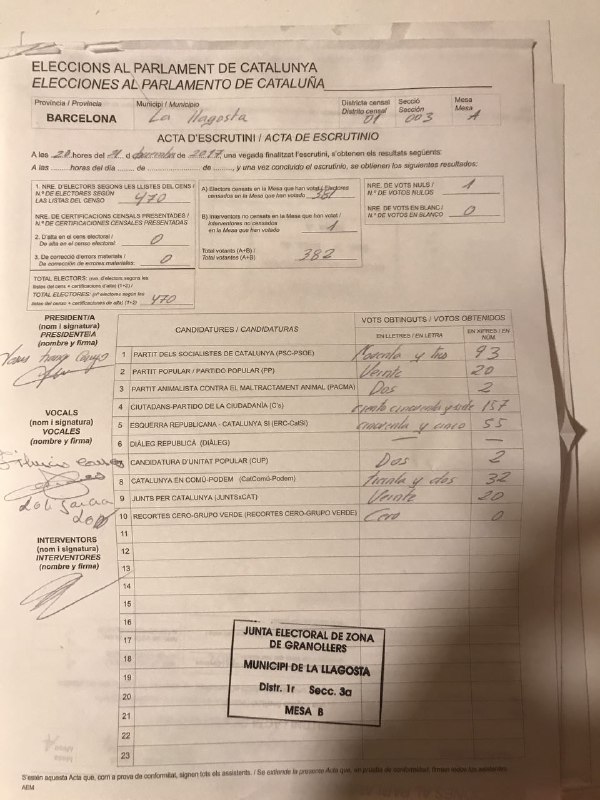 ELECCIONS AL PARLAMENT DE CATALUNYA
ELECCIONES AL PARLAMENTO DE CATALUÑA
Província / Provincia Municipi / Municipio Districte censal Distrito censal Secció Sección Mesa Mesa
BARCELONA La llagosta 01 003 A
ACTA D'ESCRUTINI / ACTA DE ESCRUTINIO
A les 20 hores del 21 d de 2017 una vegada finalitzat l'escrutini, s'obtenen els resultats següents:
A las ........ horas del día ........ de ........ de ........, y una vez concluido el escrutinio, se obtienen los siguientes resultados:
1. NRE. D'ELECTORS SEGONS LES LLISTES DEL CENS /
N.º DE ELECTORES SEGÚN
LAS LISTAS DEL CENSO 470
NRE. DE CERTIFICACIONS CENSALS PRESENTADES /
N.º DE CERTIFICACIONES CENSALES PRESENTADAS
2. D'alta en el cens electoral /
De alta en el censo electoral 0
3. De correcció d'errors materials /
De corrección de errores materiales 0
TOTAL ELECTORS: (nre. d'electors segons les
llistes del cens + certificacions d'alta) (1+2) /
TOTAL ELECTORES: (nº electores según las
listas del censo + certificaciones de alta) (1+2) 470
A) Electors censats en la Mesa que han votat / Electores
censados en la Mesa que han votado 381
B) Interventors no censats en la Mesa que han votat /
Interventores no censados
en la Mesa que han votado 1
Total votants (A+B) /
Total votantes (A+B) 382
NRE. DE VOTS NULS /
N.º DE VOTOS NULOS 1
NRE. DE VOTS EN BLANC /
N.º DE VOTOS EN BLANCO 0
PRESIDENT/A
(nom i signatura)
PRESIDENTE/A
(nombre y firma)
VOCALS
(nom i signatura)
VOCALES
(nombre y firma)
INTERVENTORS
(nom i signatura)
INTERVENTORES
(nombre y firma)
CANDIDATURES / CANDIDATURAS VOTS OBTINGUTS / VOTOS OBTENIDOS
EN LLETRES / EN LETRA EN XIFRES / EN NÚM.
1 PARTIT DELS SOCIALISTES DE CATALUNYA (PSC-PSOE) Noventa y tres 93
2 PARTIT POPULAR / PARTIDO POPULAR (PP) Veinte 20
3 PARTIT ANIMALISTA CONTRA EL MALTRACTAMENT ANIMAL (PACMA) Dos 2
4 CIUTADANS-PARTIDO DE LA CIUDADANÍA (C's) ciento cincuenta y siete 157
5 ESQUERRA REPUBLICANA - CATALUNYA SÍ (ERC-CatSí) cincuenta y cinco 55
6 DIÀLEG REPUBLICÀ (DIÀLEG) — —
7 CANDIDATURA D'UNITAT POPULAR (CUP) Dos 2
8 CATALUNYA EN COMÚ-PODEM (CatComú-Podem) Treinta y dos 32
9 JUNTS PER CATALUNYA (JUNTSxCAT) Veinte 20
10 RECORTES CERO-GRUPO VERDE (RECORTES CERO-GRUPO VERDE) Cero 0
11
12
13
14
15
16
17
18
19
20
21
22
23
JUNTA ELECTORAL DE ZONA
DE GRANOLLERS
MUNICIPI DE LA LLAGOSTA
Distr. 1r Secc. 3a
MESA B
S'estén aquesta Acta que, com a prova de conformitat, signen tots els assistents. / Se extiende la presente Acta que, en prueba de conformidad, firman todos los asistentes.
AEM